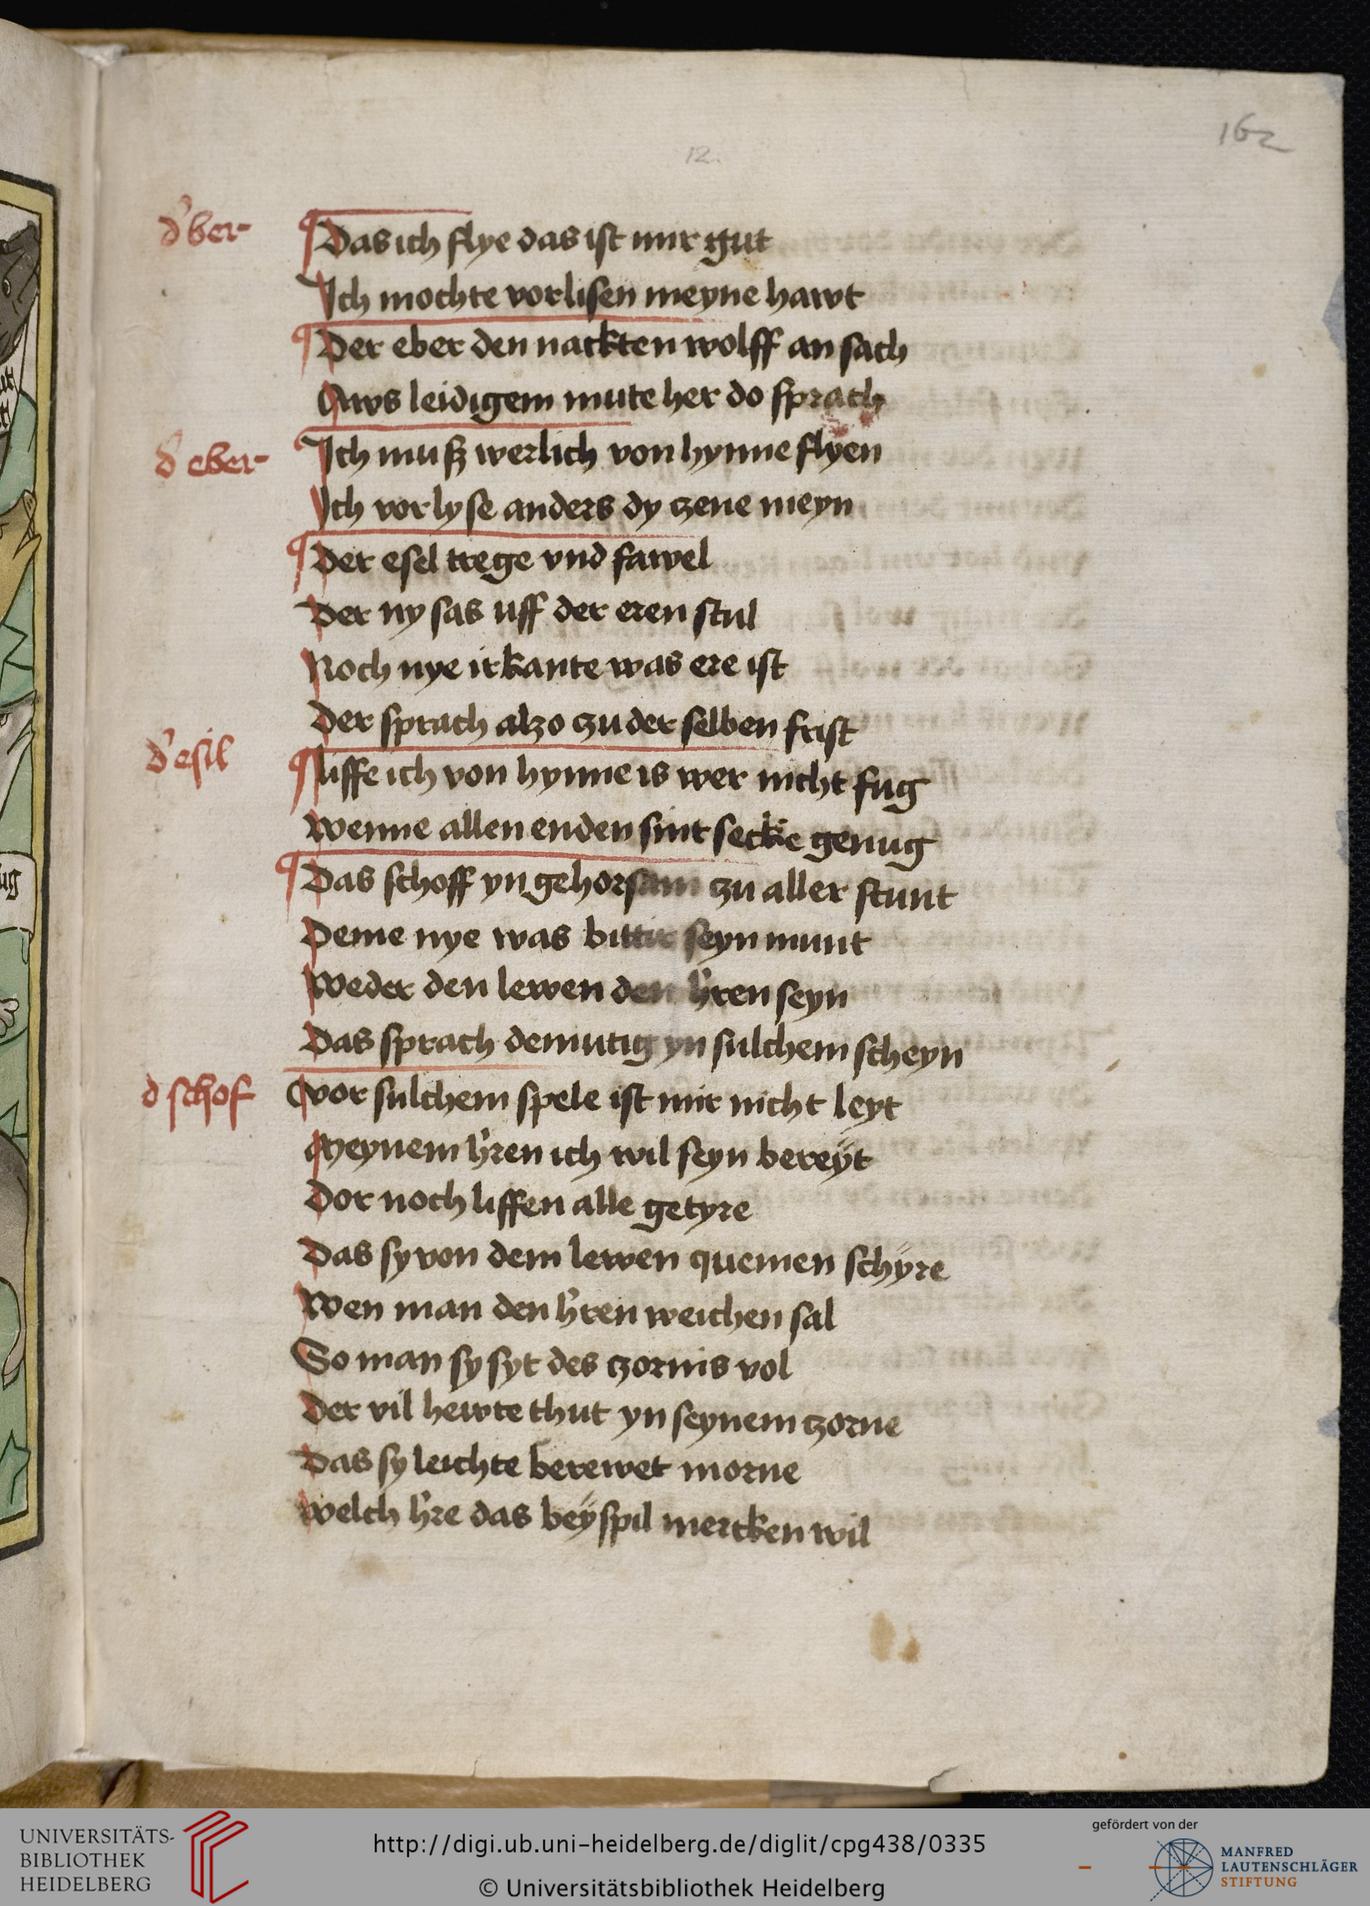 162
12.
d' ber
Das ich flye das ist mir gut
Ich mochte vorlisen meyne hawt
Der eber den nackten wolff an sach
Aws leidigem mute her do sprach
d eber
Ich muß werlich von hynne flyen
Ich vorlyse anders dy czene meyn
Der esel trege vnd fawel
Der ny sas uff der eren stul
Noch nye irkante was ere ist
Der sprach alzo zu der selben frist
d' esil
liffe ich von hynne is wer nicht fug
wenne allen enden sint secke genug
ug
Das schoff yn gehorsam zu aller stunt
Deme nye was bittir seyn munt
Weder den lewen den h'ren seyn
Das sprach demutig yn sulchem scheyn
d schof
vor sulchem spele ist mir nicht leyt
Meynem h'ren ich wil seyn bereÿt
Dor noch liffen alle getyre
Das sy von dem lewen quemen schÿre
Wen man den h'ren weichen sal
So man sy syt des czornis vol
Der vil hewte thut yn seynem czorne
Das sy leichte berewet morne
welch h're das beÿspil mercken wil
UNIVERSITÄTS-
BIBLIOTHEK
HEIDELBERG
http://digi.ub.uni-heidelberg.de/diglit/cpg438/0335
© Universitätsbibliothek Heidelberg
gefördert von der
MANFRED
LAUTENSCHLÄGER
STIFTUNG